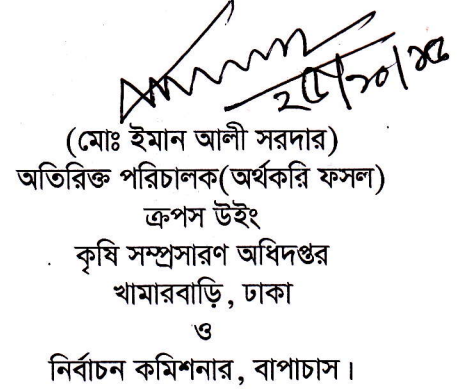 (মোঃ ইমান আলী সরদার)
অতিরিক্ত পরিচালক(অর্থকরি ফসল)
ক্রপস উইং
কৃষি সম্প্রসারণ অধিদপ্তর
খামারবাড়ি, ঢাকা
ও
নির্বাচন কমিশনার, বাপাচাস।